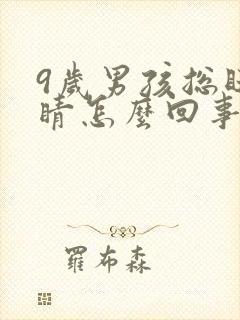 9歲男孩總眨
睛怎麼回事
羅布森